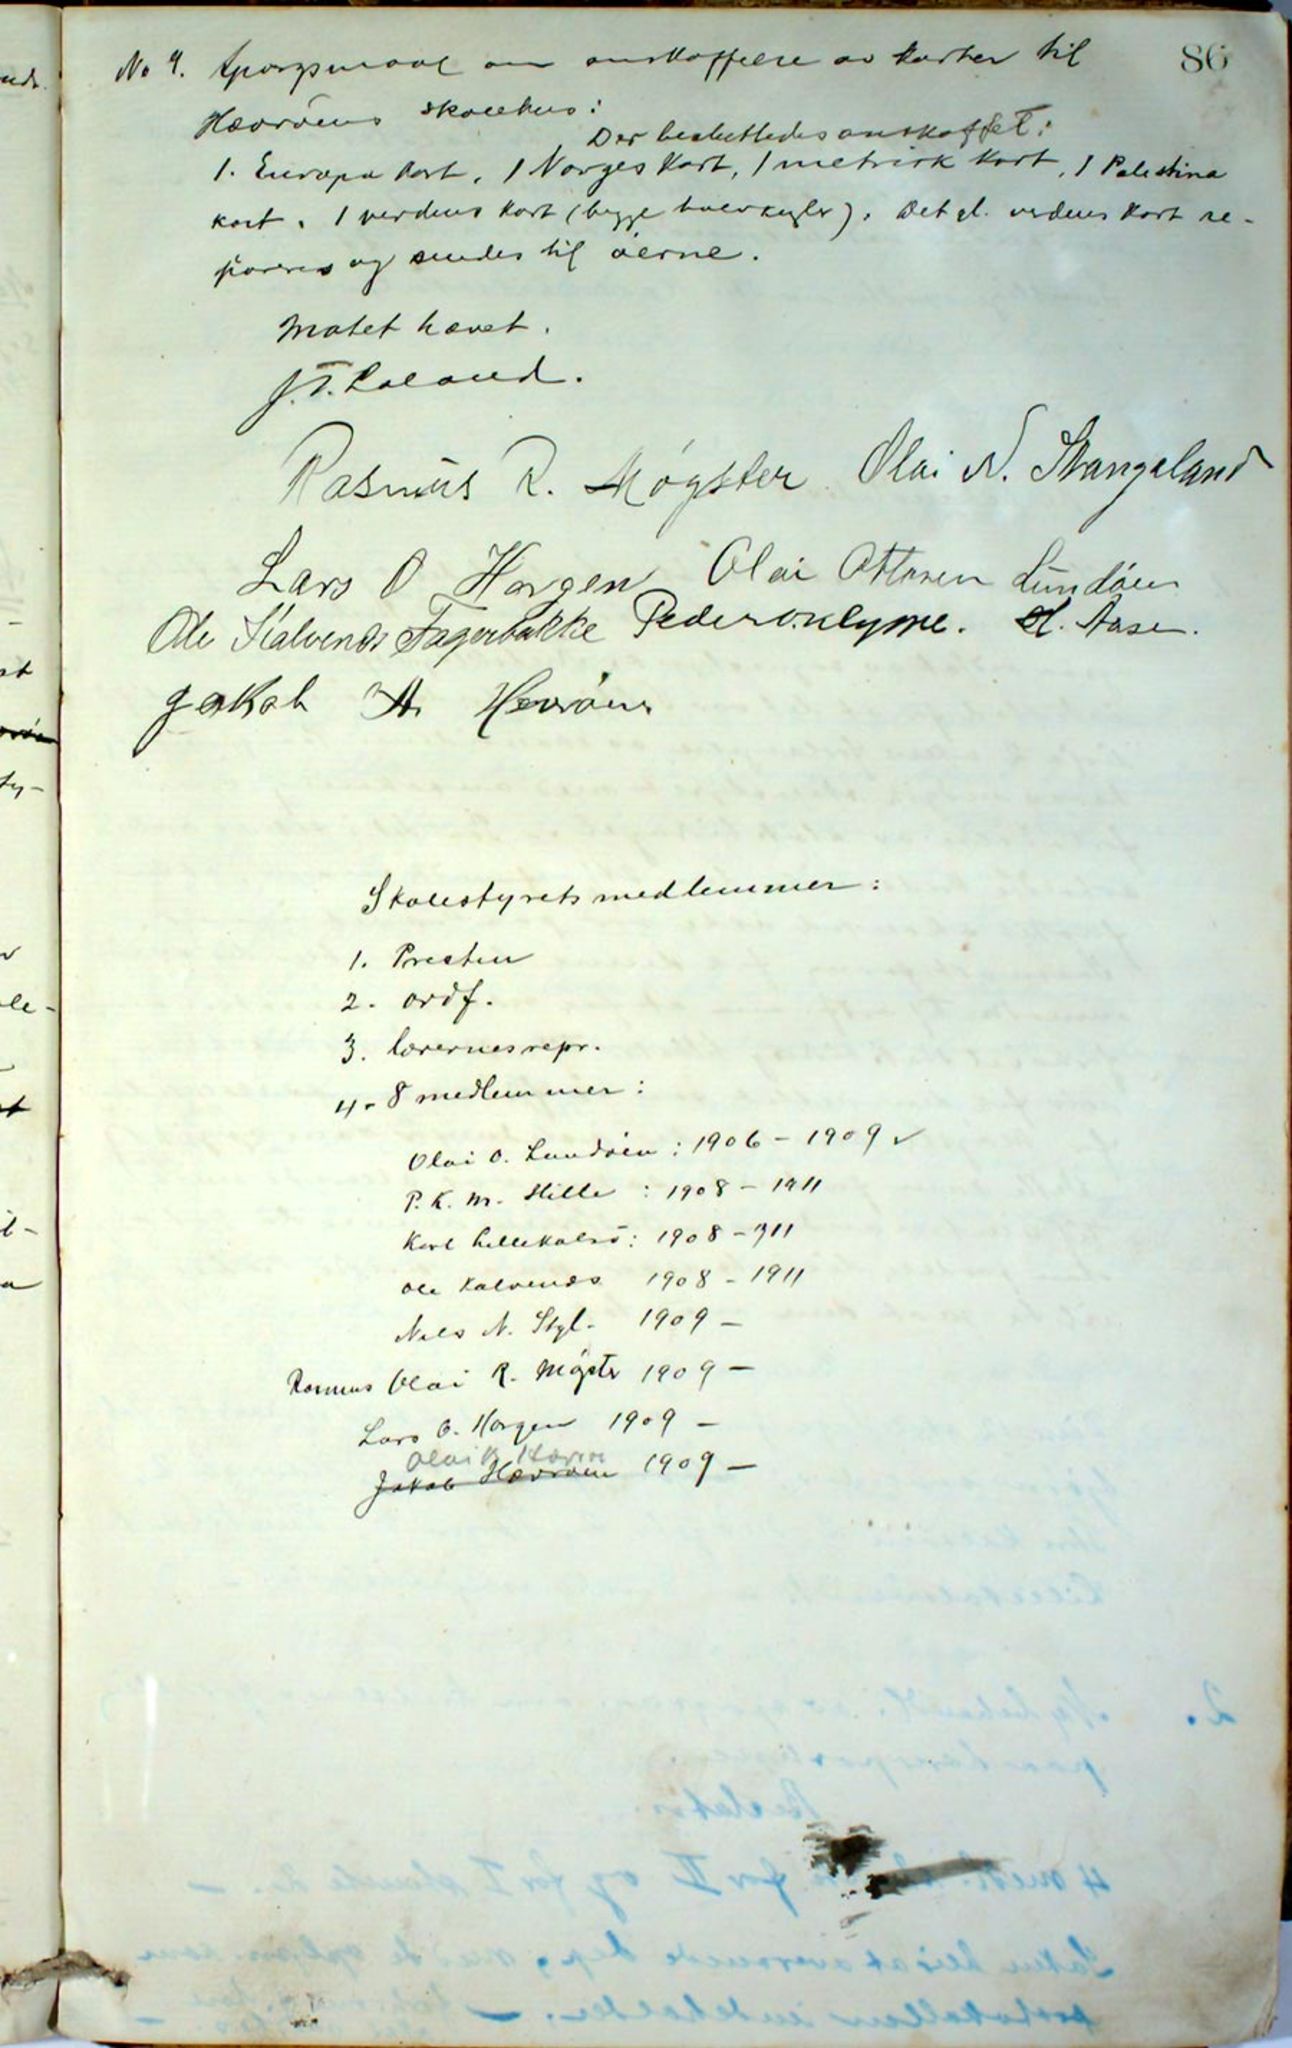 86
No 4. Spørgsmaal om anskaffelse av karter til
Hævrøens skolehus:
Der besluttedes anskaffet:
1. Europa kart, 1 Norges kart, 1 metrisk kart, 1 Palestina
kart, 1 verdens kart (begge halvkugler). Det gl. verdens kart re-
pareres og sendes til øerne.
Møtet hævet.
J. T. Røland.
Rasmus R. Møgster Olai N. Stangeland
Lars O Horgen Olai Ottesen Lundøen
Ole Kalvenæs Fagerbakke Peder A. Aase.
Jakob A. Hevrøen
Skolestyrets medlemmer:
1. Presten
2. ordf.
3. lærernes repr.
4. 8 medlemmer:
Olai O. Lundøen: 1906 - 1909 ✓
P. K. M. Hille: 1908 - 1911
Karl Lillekalsø: 1908 - 1911
Ole Kalvenæs 1908 - 1911
Nils N. Stgl. 1909 -
Rasmus Olai R. Møgster 1909 -
Lars O. Horgen 1909 -
Olai Hævrø
Jakob Hævrøen 1909 -